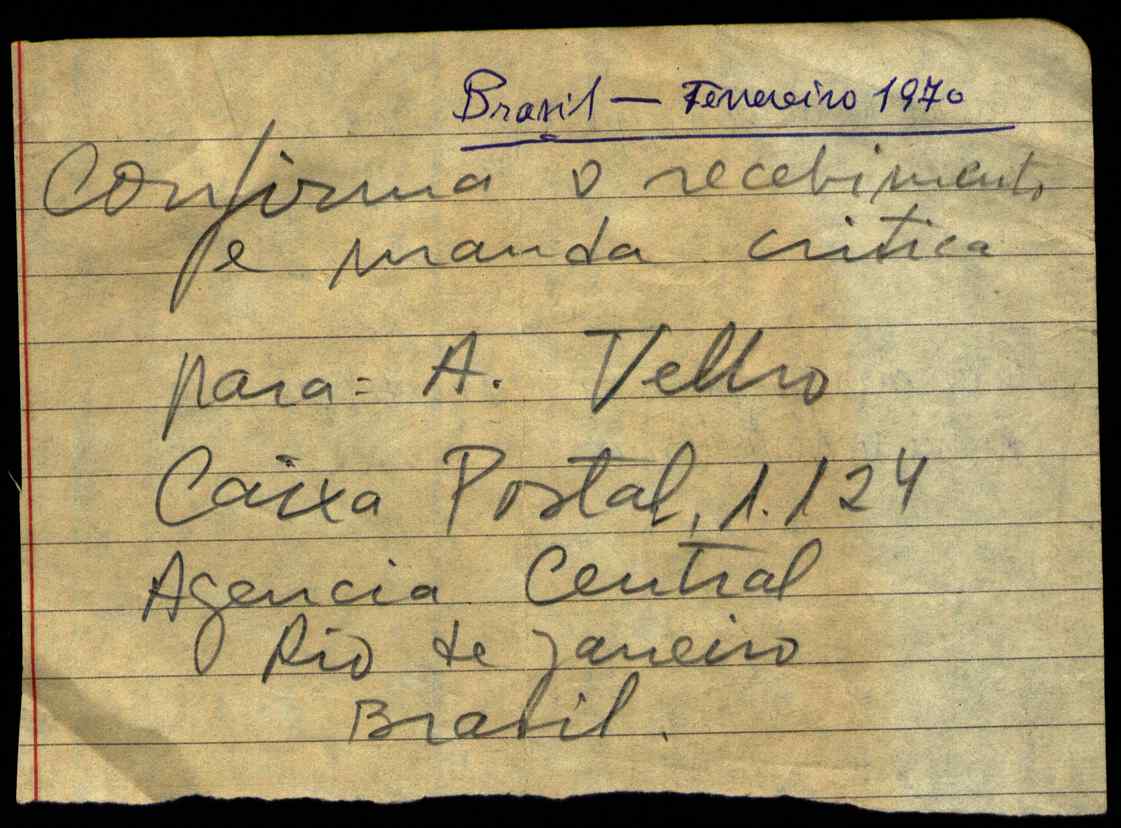 Brasil — Fevereiro 1970
Confirma o recebimento
e manda critica
para: A. Velho
Caixa Postal, 1.124
Agencia Central
Rio de Janeiro
Brasil.